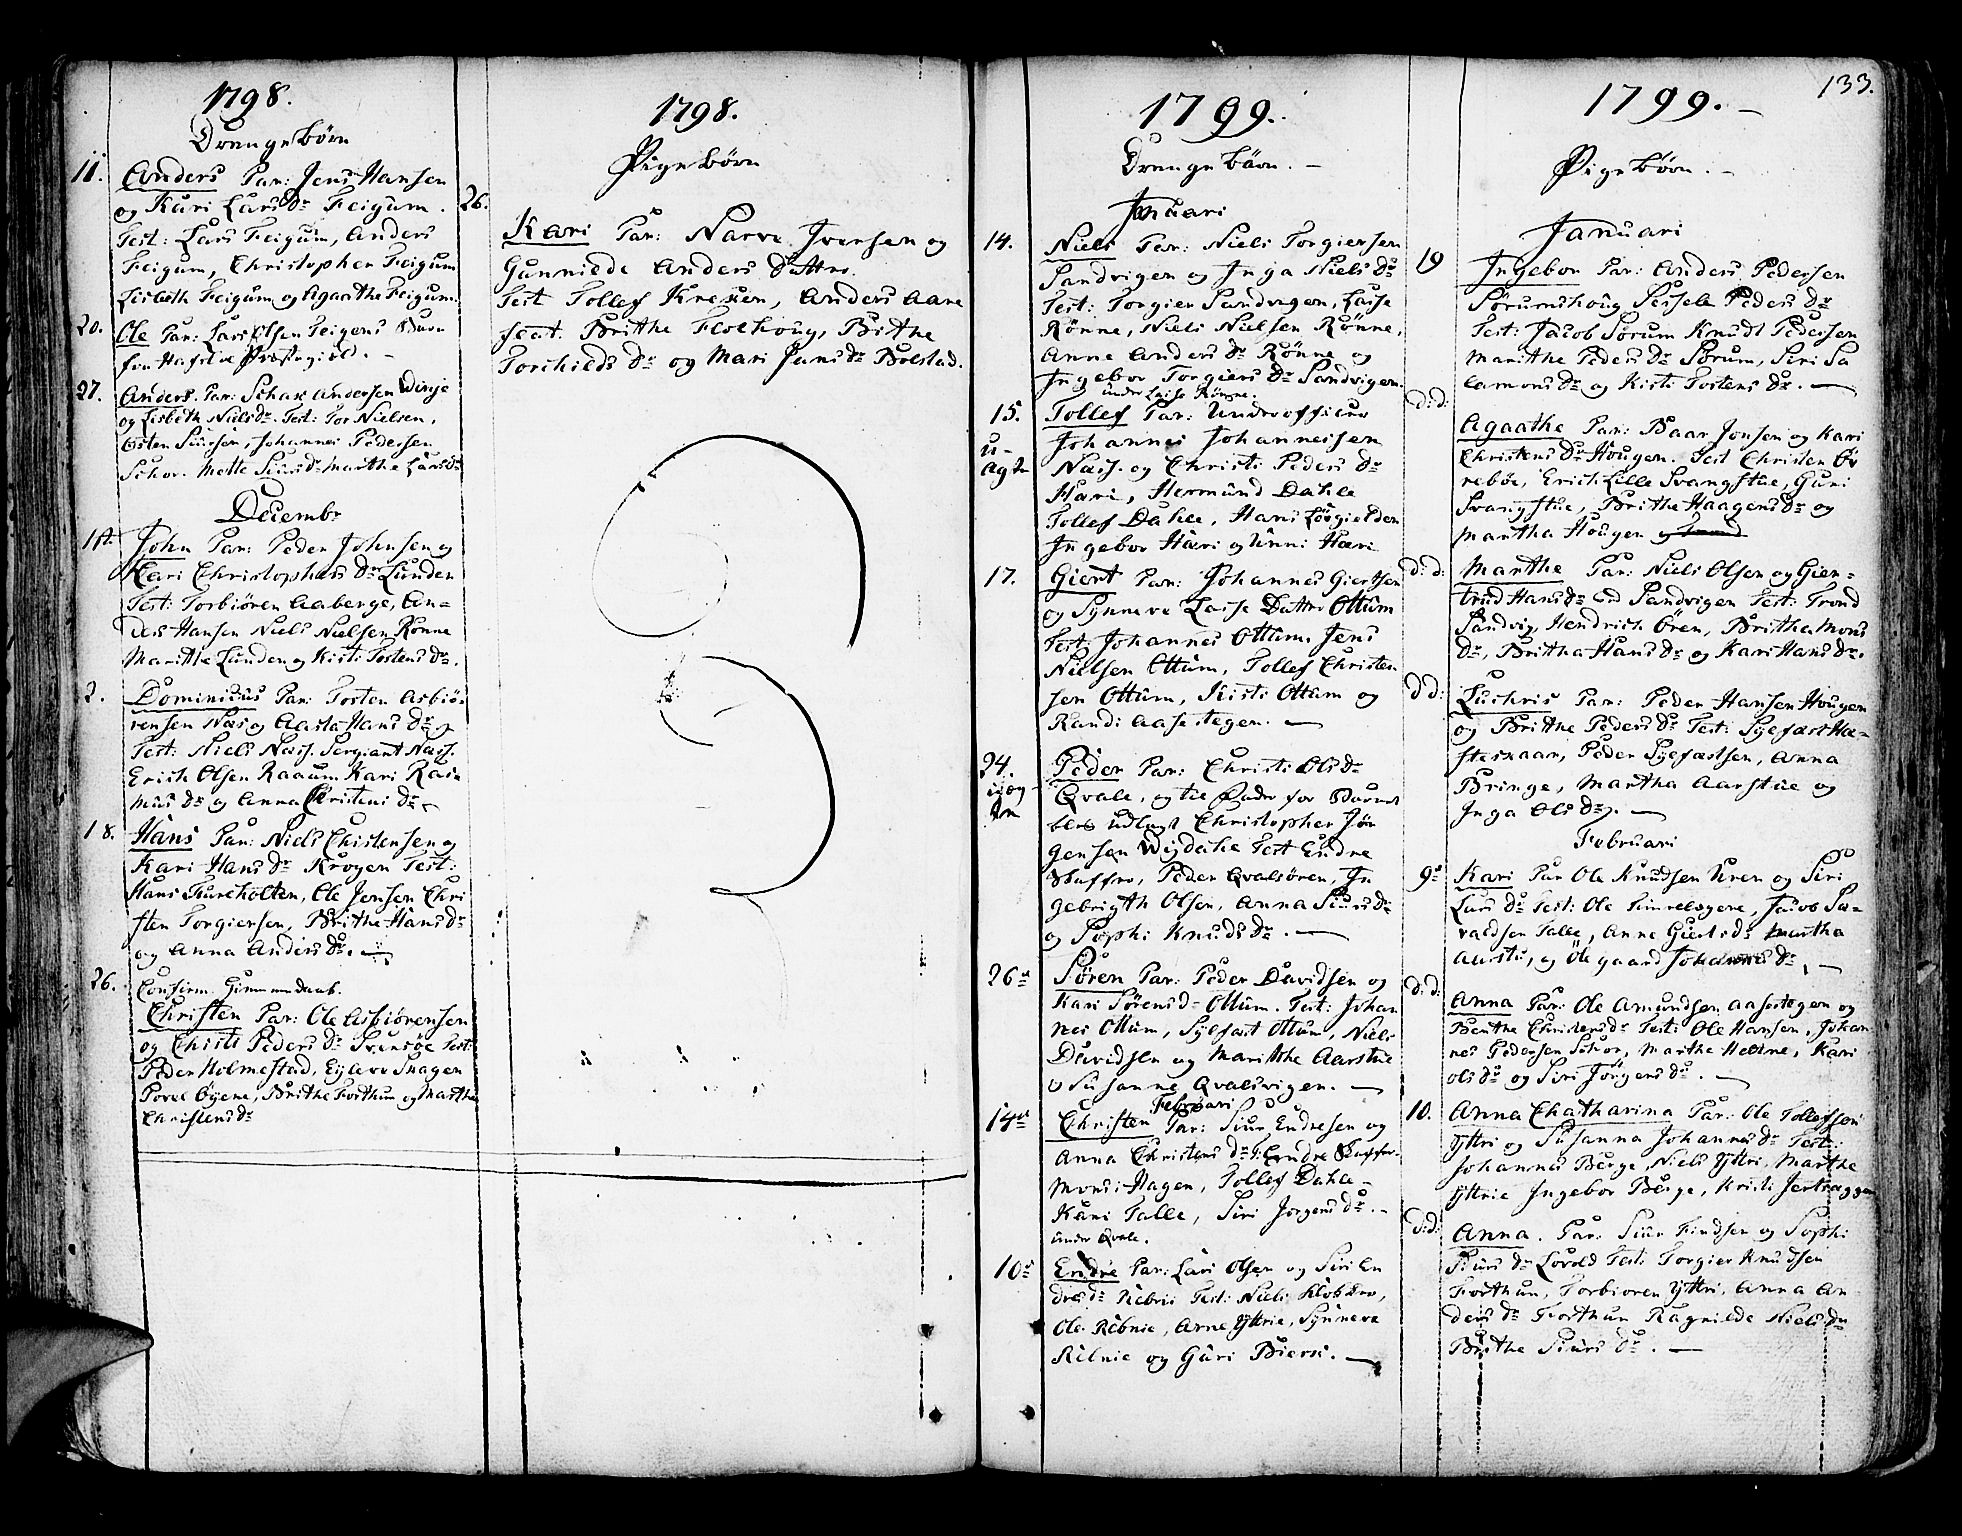 1798.
Drengebörn
11. Anders Par: Jens Hansen
og Kari Lars Dr Feigum.
Test: Lars Feigum, Anders
Feigum, Christopher Feigum
Lisbeth Feigum og Agaathe Feigum.
20. Ole Par: Lars Olsen Feigens Barn
fra Hafsloe Præstegield. –
27. Anders. Par: Schax Andersen Dinje
og Lisbeth Nielsdr. Test: Tor Nielsen,
Østen Siursen, Johannes Pedersen
Schor. Mette Siursdr Marthe Larsdr
Decembr
John Par: Peder Johnsen og
Kari Christophers Dr Lunden
Test: Torbiören Aaberge, An=
ders Hansen Niels Nielsen Rönne
Marithe Lunden og Kisti Tostens Dr.
2. Dominicus Par: Tosten Asbiö=
rensen Næs og Aasta Hans Dr
Test: Niels Næss. Sergiant Næss.
Erich Olsen Raaum Kari Ras=
mus Dr og Anna Christens Dr
18. Hans Par: Niels Christensen og
Kari Hans Dr Krogen Test:
Hans Fureholten, Ole Jensen Chri
sten Torgiersen, Brithe Hans Dr
og Anna Anders Dr.
26. Confirm. Hiemmedaab.
Christen Par: Ole Asbiörensen
og Christi Peders Dr Svensøe Test:
Peder Holmestad, Eylevo Snagen
Povel Öyene, Brithe Forthun og Marthe
Christensdr
1798.
Pigebörn
26. Kari Par: Narve Iversen og
Gunnilde Anders Dattr.
Test Tollef Kreken, Anders Aare
Brithe Floehoug, Brithe
Torchilds Dr og Mari Jens Dr Bolstad.
1799.
Drengebörn. –
Januari
14. Niels Par: Niels Torgiersen
Sandvigen og Inga Niels Dr
Test: Torgier Sandvigen, Lasse
Rönne, Niels Nielsen Rönne,
Anne Anders Dr Rönne og
Ingebor Torgiers Dr Sandvigen.
under Lasse Rönne.
15. Tollef Par: Underofficer
Johannes Johannessen
Næss. og Christi Peders Dr
Hæri, Hermund Dahle
Tollef Dahle, Hans
Ingebor Hæri og Unni Hæri
17. Giert Par: Johannes Giertsen
og Synneve Lasse Dattr Ottum
Test: Johannes Ottum. Jens
Nielsen Ottum, Tollef Christen
sen Ottum, Kisti Ottum og
Randi Aasestegen. —
24. Peder Par: Christi Olsdr
Qvale, og til Fader for Barnet
blev udlagt Christopher Jör
gensen Dejdahe Test Endre
Skaffer, Peder Qvalsören, In
gebrigth Olsen, Anna Siursdr
og Sophi Knuds Dr. —
26de Sören Par: Peder Davidsen og
Kari Sörensd= Ottum. Test: Johan
nes Ottum, Sylfast Ottum, Niels
Davidsen og Marithe Aarstue
o Susanne Qvalsvigen. —
Februari
14de Christen Par: Siur Endresen og
Anna Christens Dr T: Endre Skaffer.
Mons: Hagen, Tollef Dahle –
Kari Talle, Siri Jorgens Dr. –
under Qvale.
10de Endre Par: Lars Olsen og Siri En
dresdr Ribnie Test: Niels Klokker,
Ole Ribnie, Arne Yttrie, Synneve
Ribnie og Guri Biersi. —
133.
1799. –
Pigebörn. –
Januari
19 Ingebor Par: Anders Pedersen
Sörumshoug Sessele Peders Dr
Test: Jacob Sörum Knudt Pedersen
Marithe Peders Dr Sörum, Siri Sa
lamons Dr og Kisti Tostens Dr. —
d: d: Agaathe Par: Baar Jonsen og Kari
Christens Dr Hougen. Test Christen Öv
reböe, Erich Lille Svangstue, Guri
Svangstue, Brithe Haagens Dr og
Martha Hougen
d: d: Marthe Par: Niels Olsen og Gier=
trud Hans Dr Sandvigen Test: Trond
Sandvig, Hendrich Ören, Britha Mons
Dr, Britha Hans Dr og Kari Hans Dr.
d d: Luchris Par: Peder Hansen Hougen
og Brithe Peders Dr Test: Sylfast Ha=
Peder Sylfastsen, Anna
Bringe, Martha Aarstue og
Inga Ols Dr. —
Februari
9de Kari Par Ole Knudsen Uren og Siri
Lars Dr Test: Ole Jacob Sa=
Talle, Anne Giertsdr Martha
og Ölegaard Johannes Dr. —
d: d: Anna Par: Ole Amundsen Aasestegen og
Benthe Christensdr Test: Ole Hansen, Johan
nes Pedersen Schor, Marthe Heltne, Kari
Olsdr og Siri Jörgens Dr. —
10. Anna Chatharina Par: Ole Tollefssen
Yttri og Susanna Johannes Dr Test:
Johannes Berge, Niels Yttri, Marthe
Yttrie Ingebor Berge, Kristi
d: d: Anna. Par: Siur Findsen og Sophi
Siurs Dr Test: Torgier Knudsen
Forthun, Torbioren Yttri, Anna An
ders Dr Forthun Ragnilde Niels Dr
Brithe Siurs Dr. —